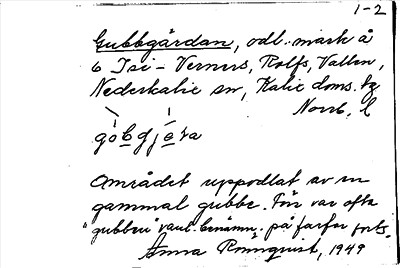 1-2
Gubbgärdan, odl. mark å
6 Isi- Verners, Rolfs, Vallen,
Nederkalix sn, Kalix doms. tg
Norrb. l
Området uppodlat av en
gammal gubbe. Förr var ofta
"gubben" vanl. benämn. på farfar forts.
Anna Rönnqvist, 1949